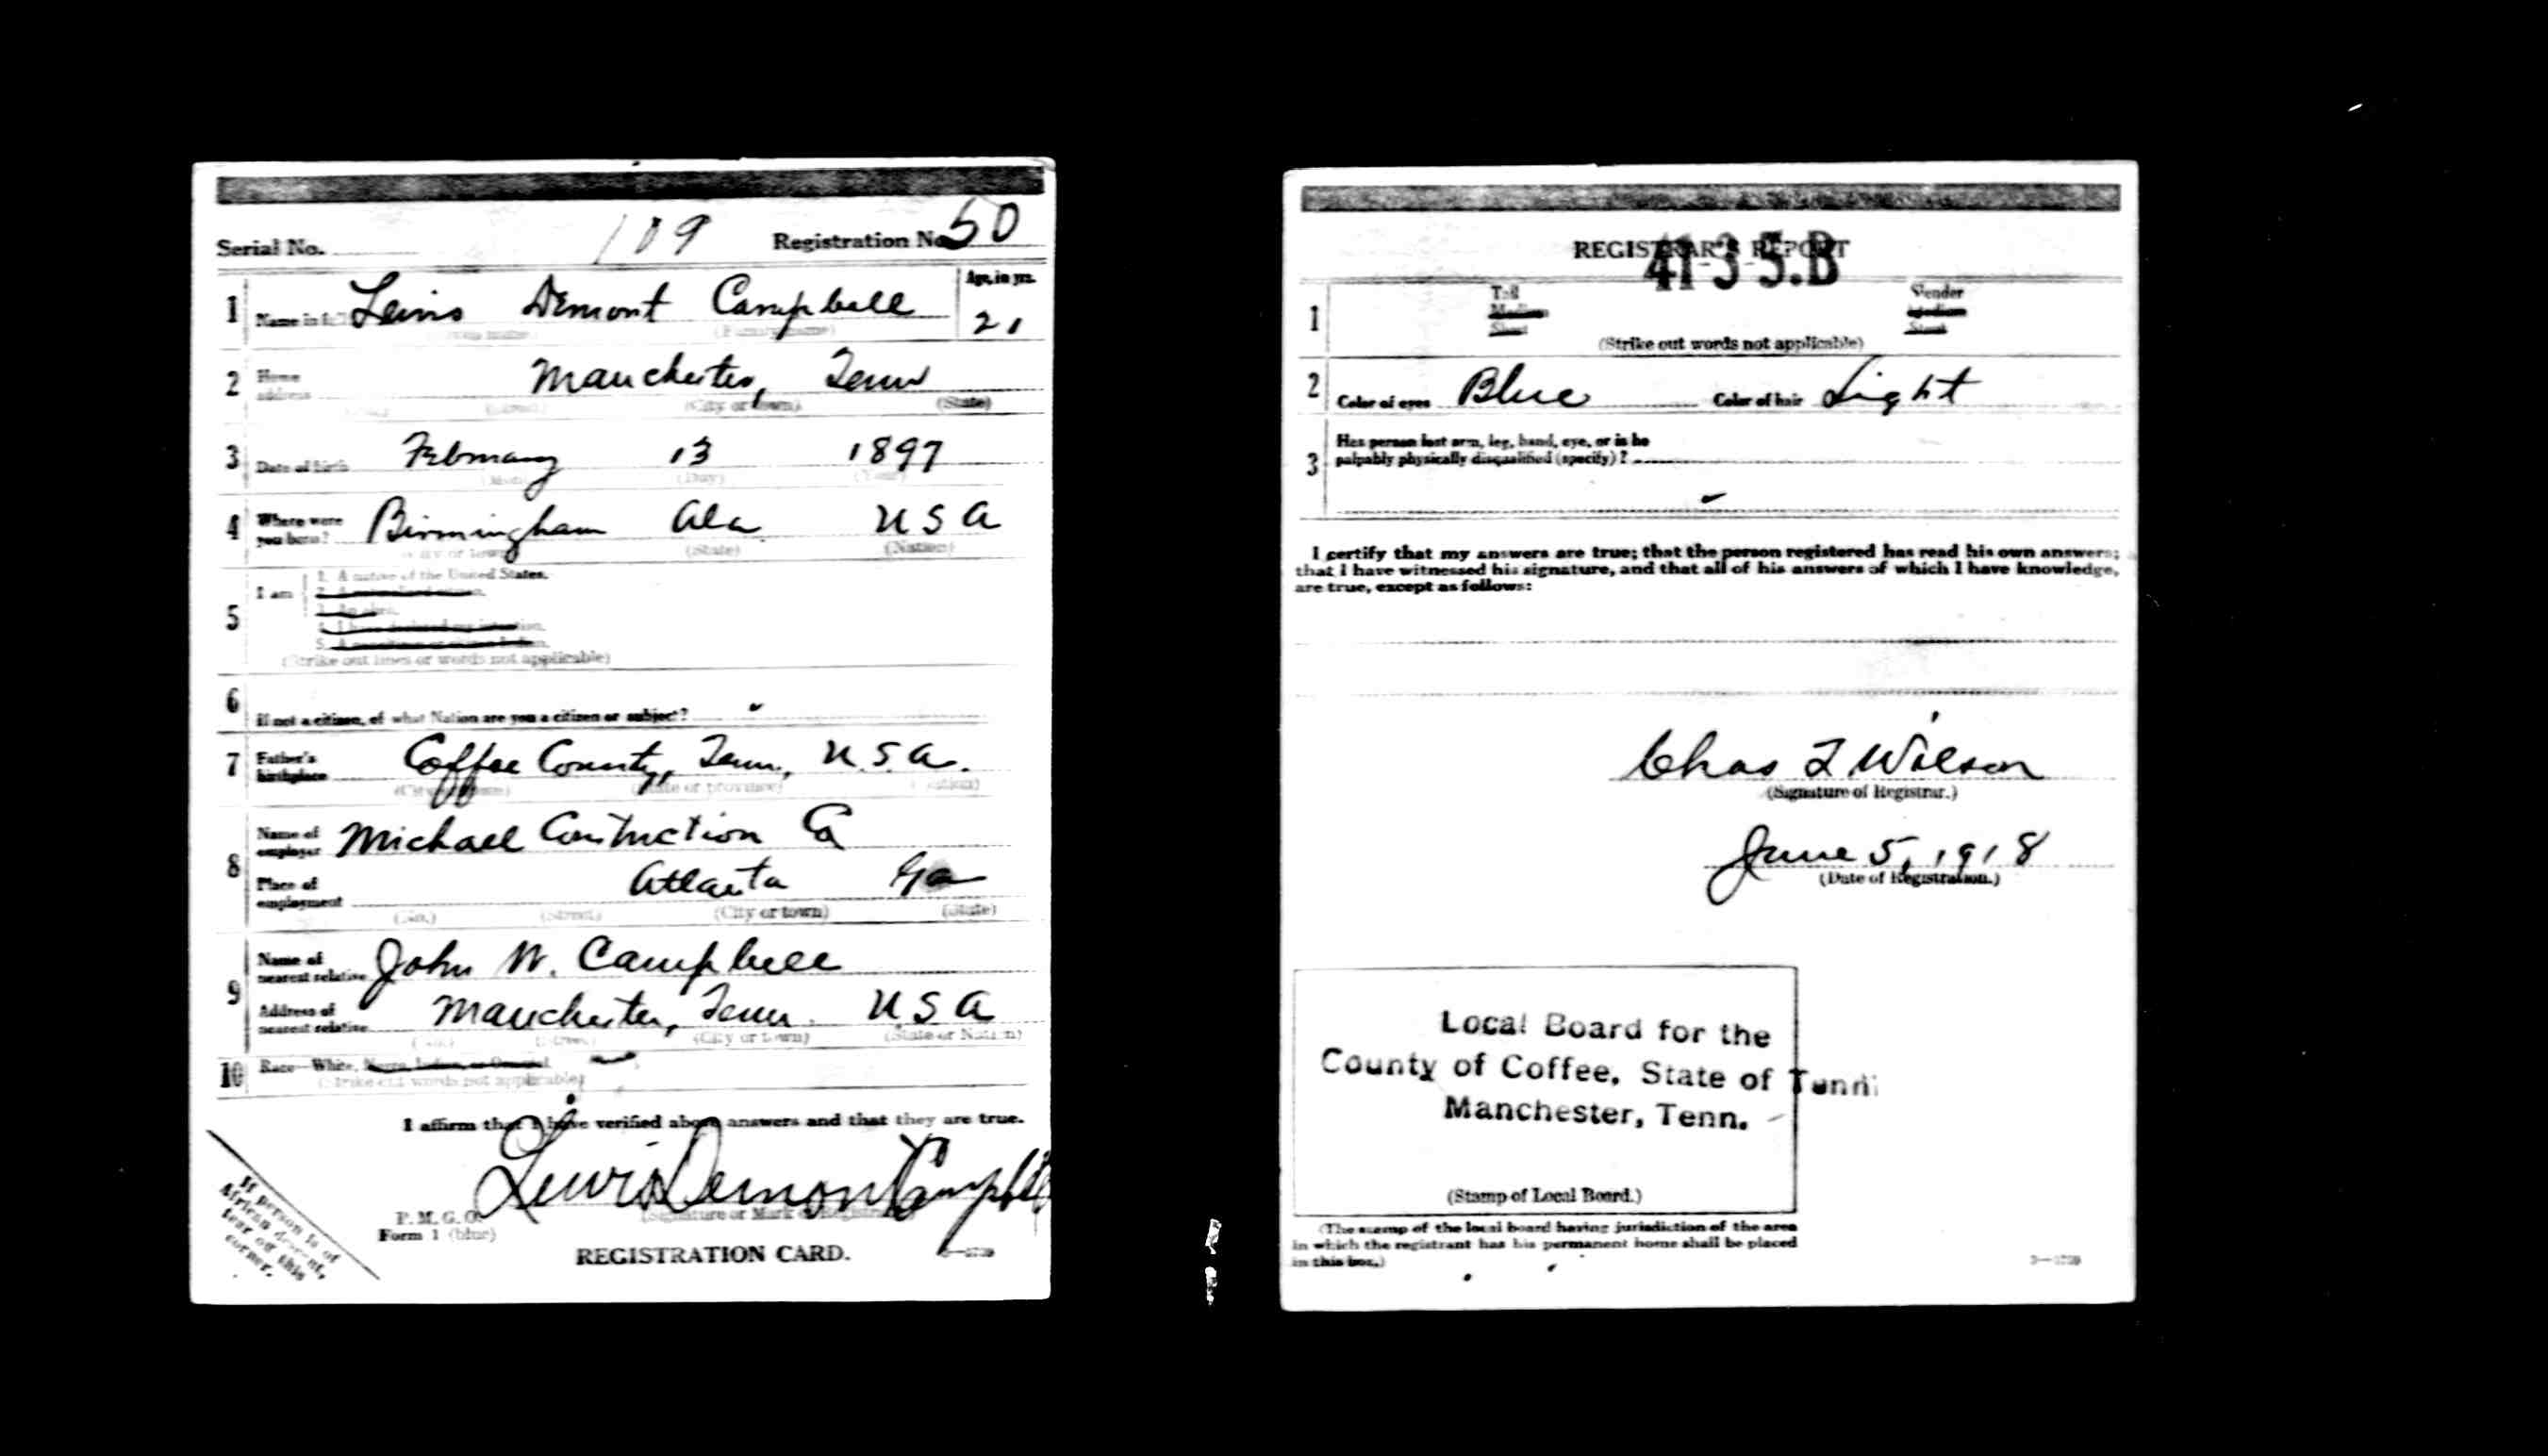 Serial No. 109 Registration No. 50
1 Name in full Lewis Demont Campbell Age, in yrs. 21
(Family name)
2 Home address Manchester, Tenn
(City or town) (State)
3 Date of birth February 13 1897
(Month) (Day) (Year)
4 Where were you born? Birmingham Ala U S A
(City or town) (State) (Nation)
5 I am 1. A native of the United States.
2. A naturalized citizen.
3. An alien.
4. I have declared my intention.
5. A noncitizen or citizen Indian.
(Strike out lines or words not applicable)
6 If not a citizen, of what Nation are you a citizen or subject?
7 Father's birthplace Coffee County, Tenn., U.S.A.
(City or town) (State or province) (Nation)
8 Name of employer Michael Contruction Co
Place of employment Atlanta Ga
(No.) (Street) (City or town) (State)
9 Name of nearest relative John W. Campbell
Address of nearest relative Manchester, Tenn. U S A
(No.) (Street) (City or town) (State or Nation)
10 Race—White, Negro, Indian, or Oriental.
(Strike out words not applicable)
I affirm that I have verified above answers and that they are true.
Lewis Demont Campbell
(Signature or Mark of Registrant)
P. M. G. O.
Form 1 (blue)
REGISTRATION CARD.
If person is of
African descent,
tear off this
corner.
REGISTRAR'S REPORT
41-3-5.B
1 Tall Slender
Medium Medium
Short Stout
(Strike out words not applicable)
2 Color of eyes Blue Color of hair Light
3 Has person lost arm, leg, hand, eye, or is he
palpably physically disqualified (specify)?
I certify that my answers are true; that the person registered has read his own answers;
that I have witnessed his signature, and that all of his answers of which I have knowledge,
are true, except as follows:
Chas T Wilson
(Signature of Registrar.)
June 5, 1918
(Date of Registration.)
Local Board for the
County of Coffee, State of Tenn.
Manchester, Tenn.
(Stamp of Local Board.)
(The stamp of the local board having jurisdiction of the area
in which the registrant has his permanent home shall be placed
in this box.)